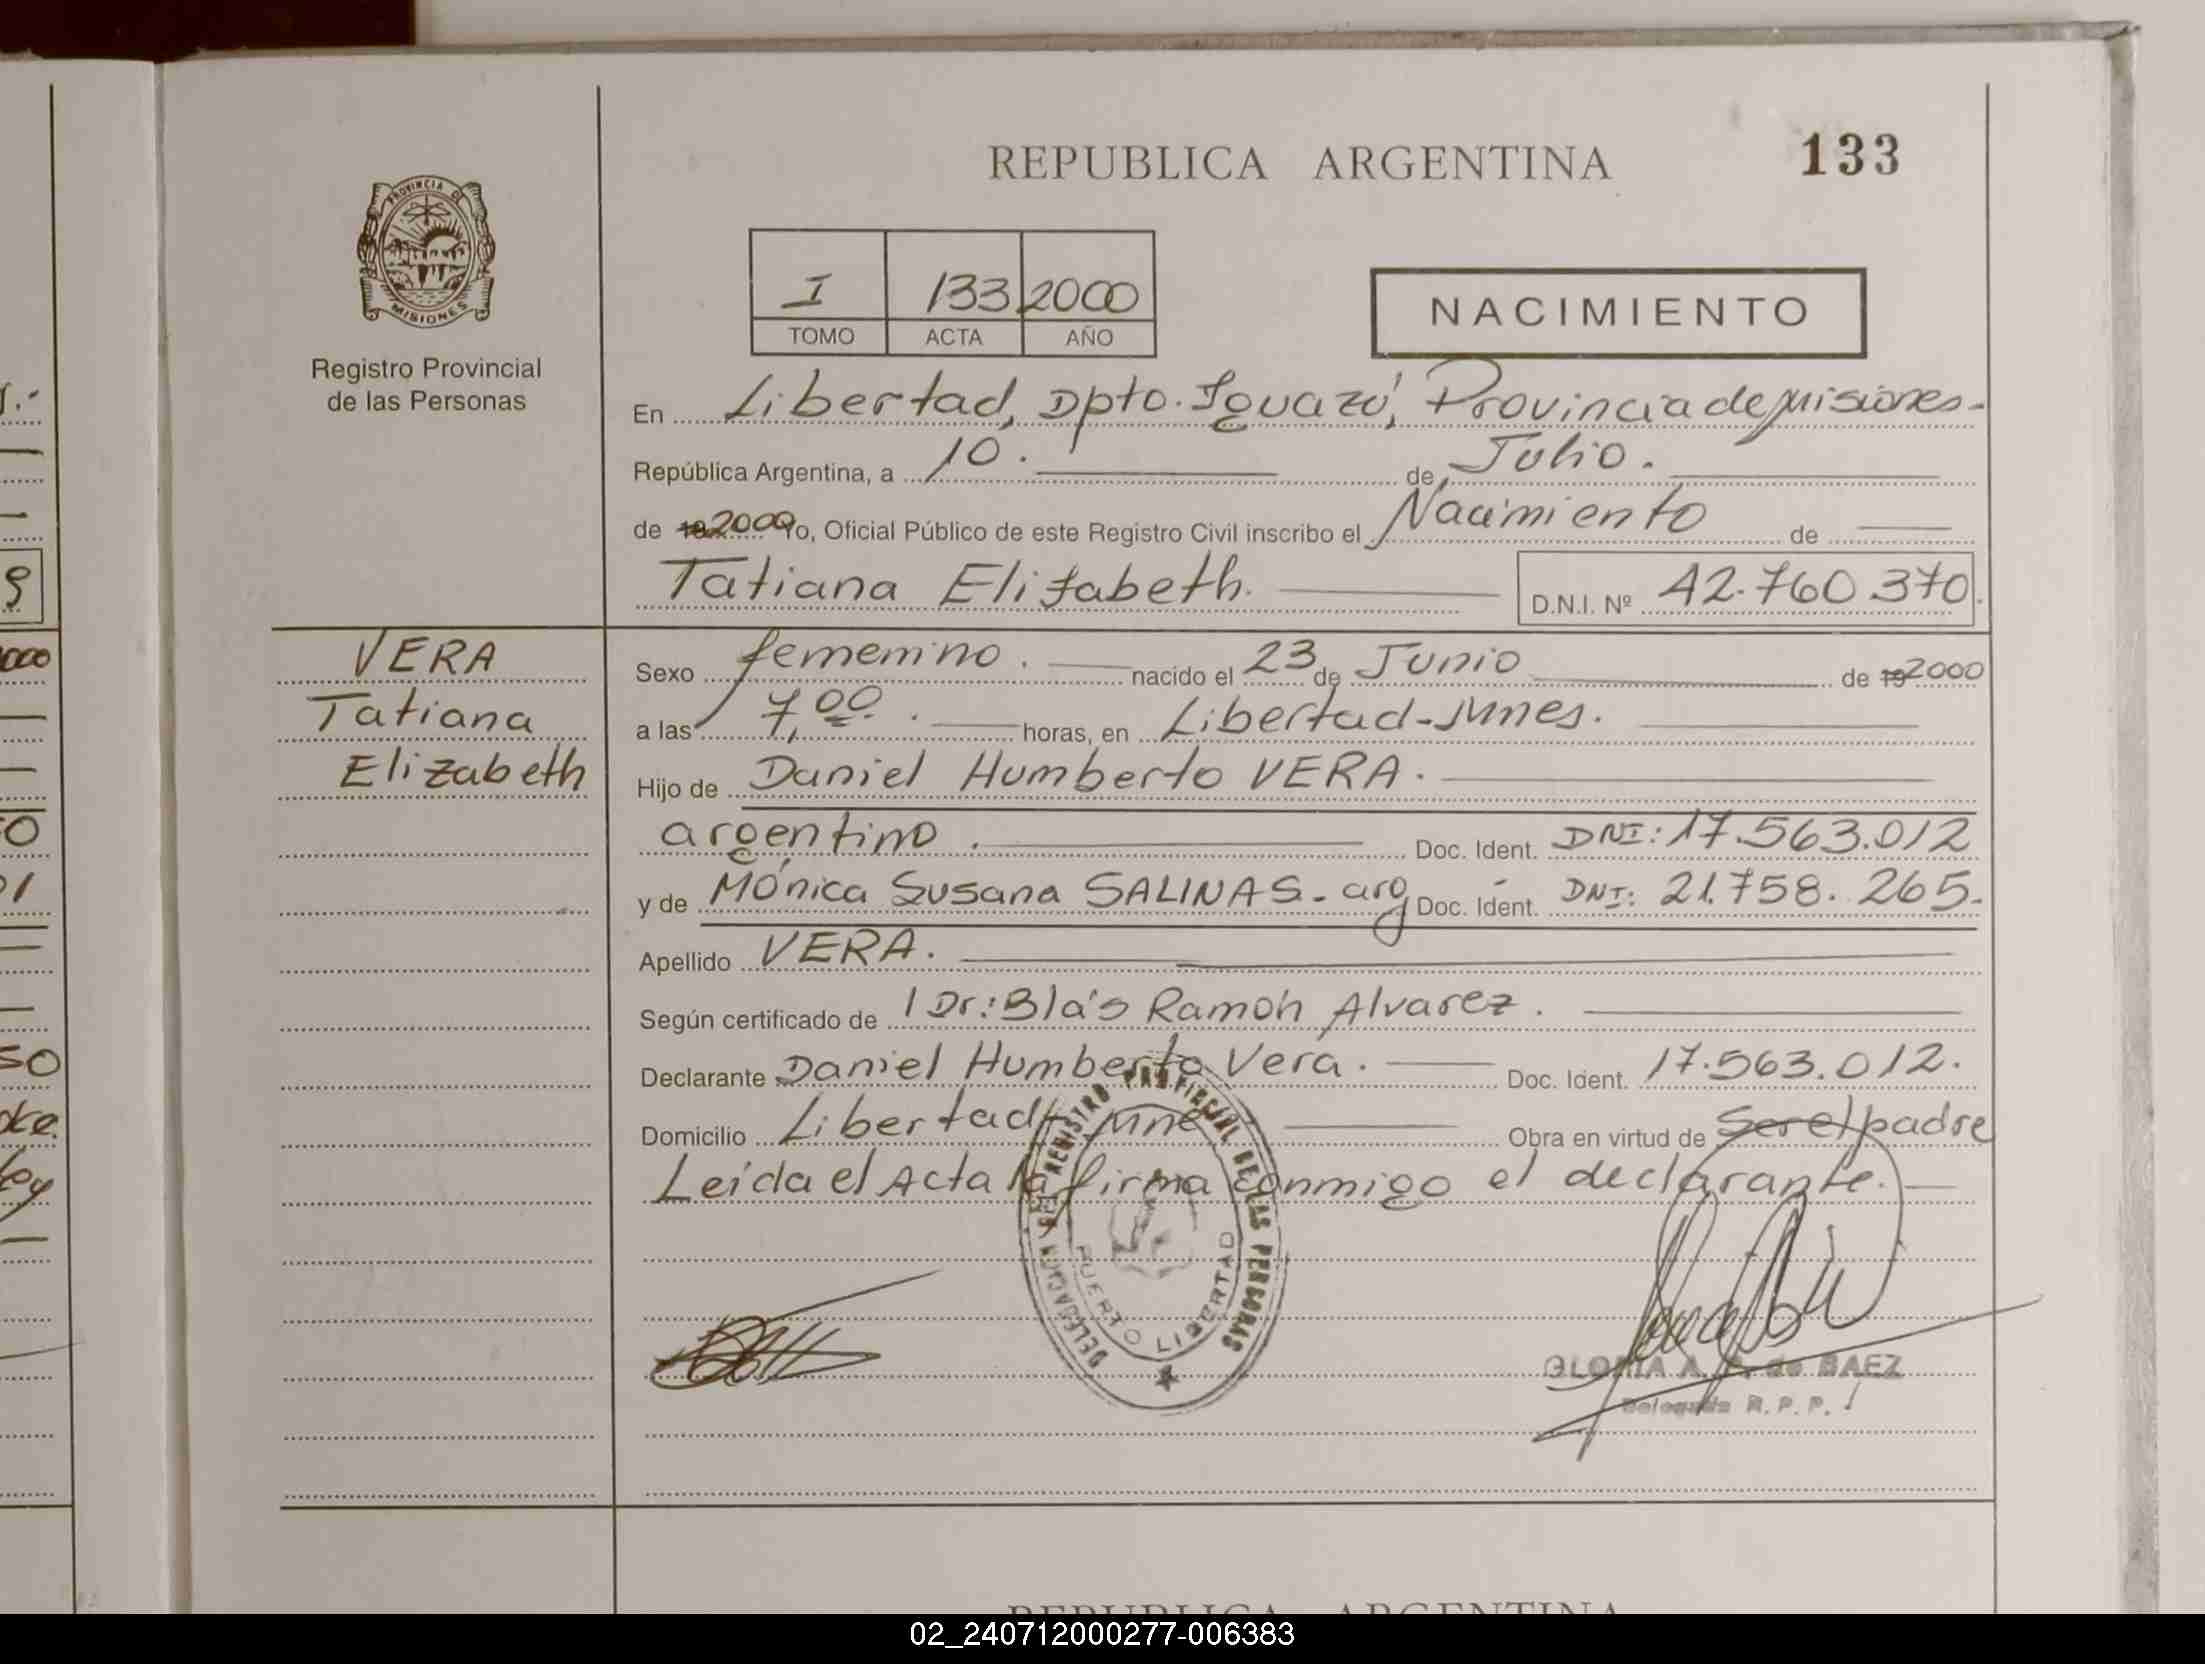 REPUBLICA ARGENTINA
133
PROVINCIA DE
MISIONES
Registro Provincial
de las Personas
I 133 2000
TOMO ACTA AÑO
NACIMIENTO
En Libertad, Dpto. Iguazú, Provincia de Misiones.
República Argentina, a 10. de Julio.
de 19 2000 Yo, Oficial Público de este Registro Civil inscribo el Nacimiento de
Tatiana Elizabeth. D.N.I. Nº 42.760.370.
VERA
Tatiana
Elizabeth
Sexo femenino. nacido el 23 de Junio de 19 2000
a las 7,00. horas, en Libertad-Mnes.
Hijo de Daniel Humberto VERA.
argentino. Doc. Ident. DNI: 17.563.012
y de Mónica Susana SALINAS- arg Doc. Ident. DNI: 21.758.265.
Apellido VERA.
Según certificado de Dr: Blás Ramón Alvarez.
Declarante Daniel Humberto Vera. Doc. Ident. 17.563.012.
Domicilio Libertad- Mne Obra en virtud de Ser el padre
Leída el Acta la firma conmigo el declarante.
DELEGACION DEL REGISTRO PROVINCIAL DE LAS PERSONAS
PUERTO LIBERTAD
GLORIA A. de BAEZ
Delegada R. P. P.
REPUBLICA ARGENTINA
02_240712000277-006383